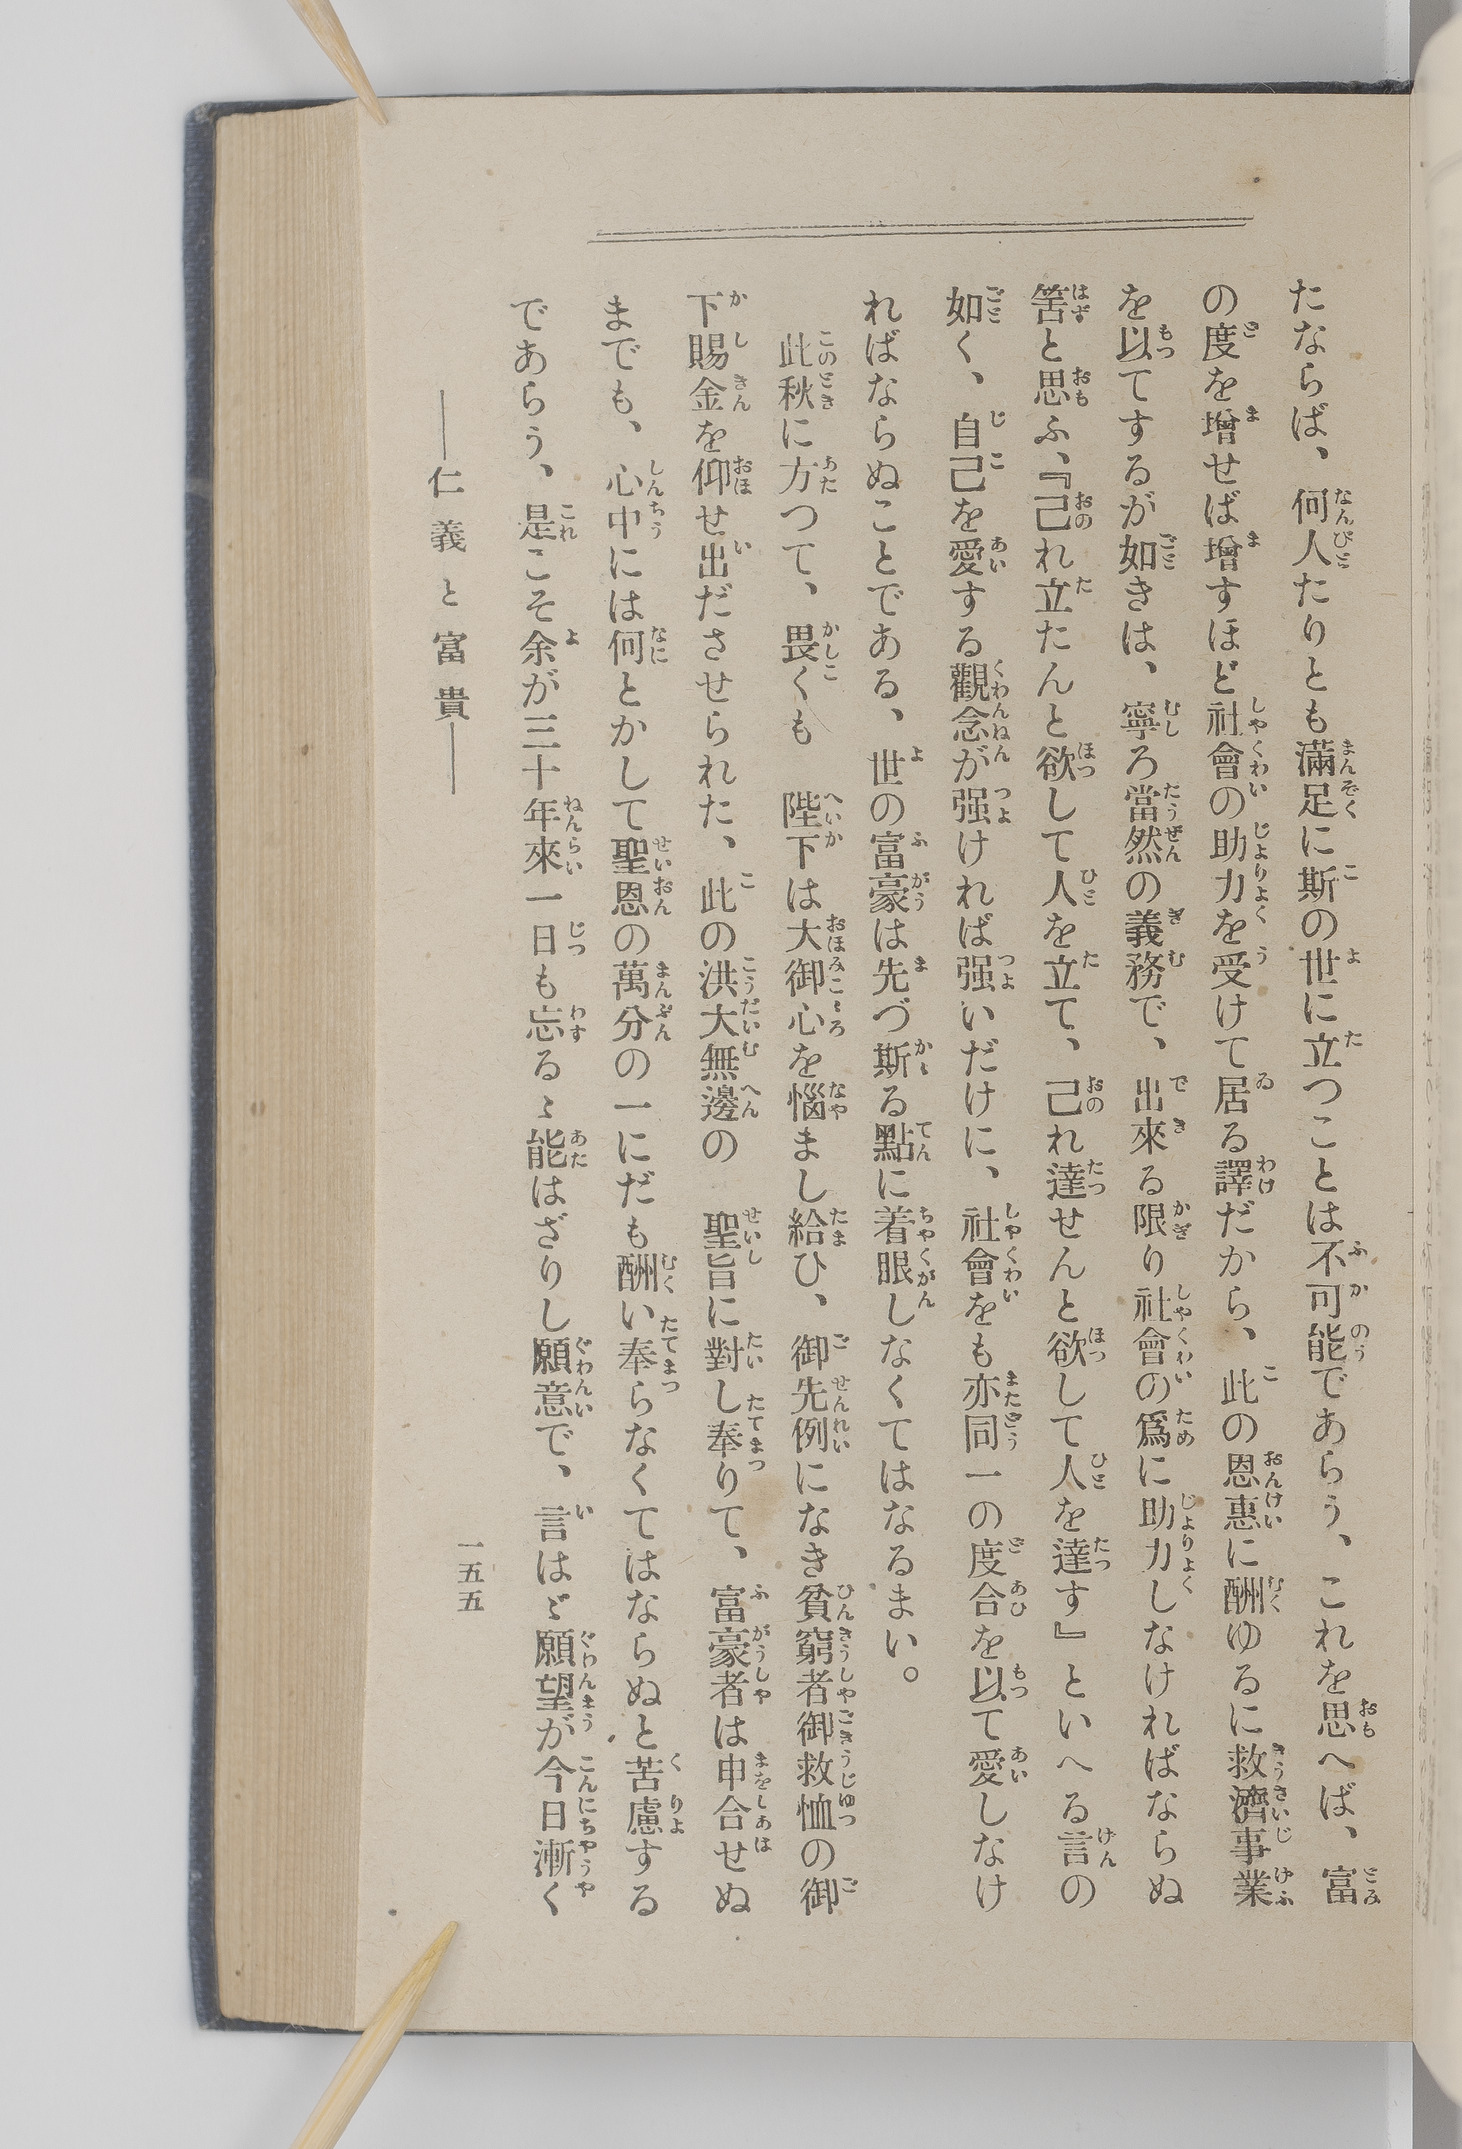 たならば、何人たりとも滿足に斯の世に立つことは不可能であらう、これを思へば、富
の度を增せば增すほど社會の助力を受けて居る譯だから、此の恩惠に酬ゆるに救濟事業
を以てするが如きは、寧ろ當然の義務で、出來る限り社會の爲に助力しなければならぬ
筈と思ふ、『己れ立たんと欲して人を立て、己れ達せんと欲して人を達す』といへる言の
如く、自己を愛する觀念が强ければ强いだけに、社會をも亦同一の度合を以て愛しなけ
ればならぬことである、世の富豪は先づ斯る點に着眼しなくてはなるまい。
此秋に方つて、畏くも 陛下は大御心を惱まし給ひ、御先例になき貧窮者御救恤の御
下賜金を仰せ出だされせられた、此の洪大無邊の 聖旨に對し奉りて、富豪者は申合せぬ
までも、心中には何とかして聖恩の萬分の一にだも酬い奉らなくてはならぬと苦慮する
であらう、是こそ余が三十年來一日も忘るゝ能はざりし願意で、言はゞ願望が今日漸く
――仁義と富貴――
一五五